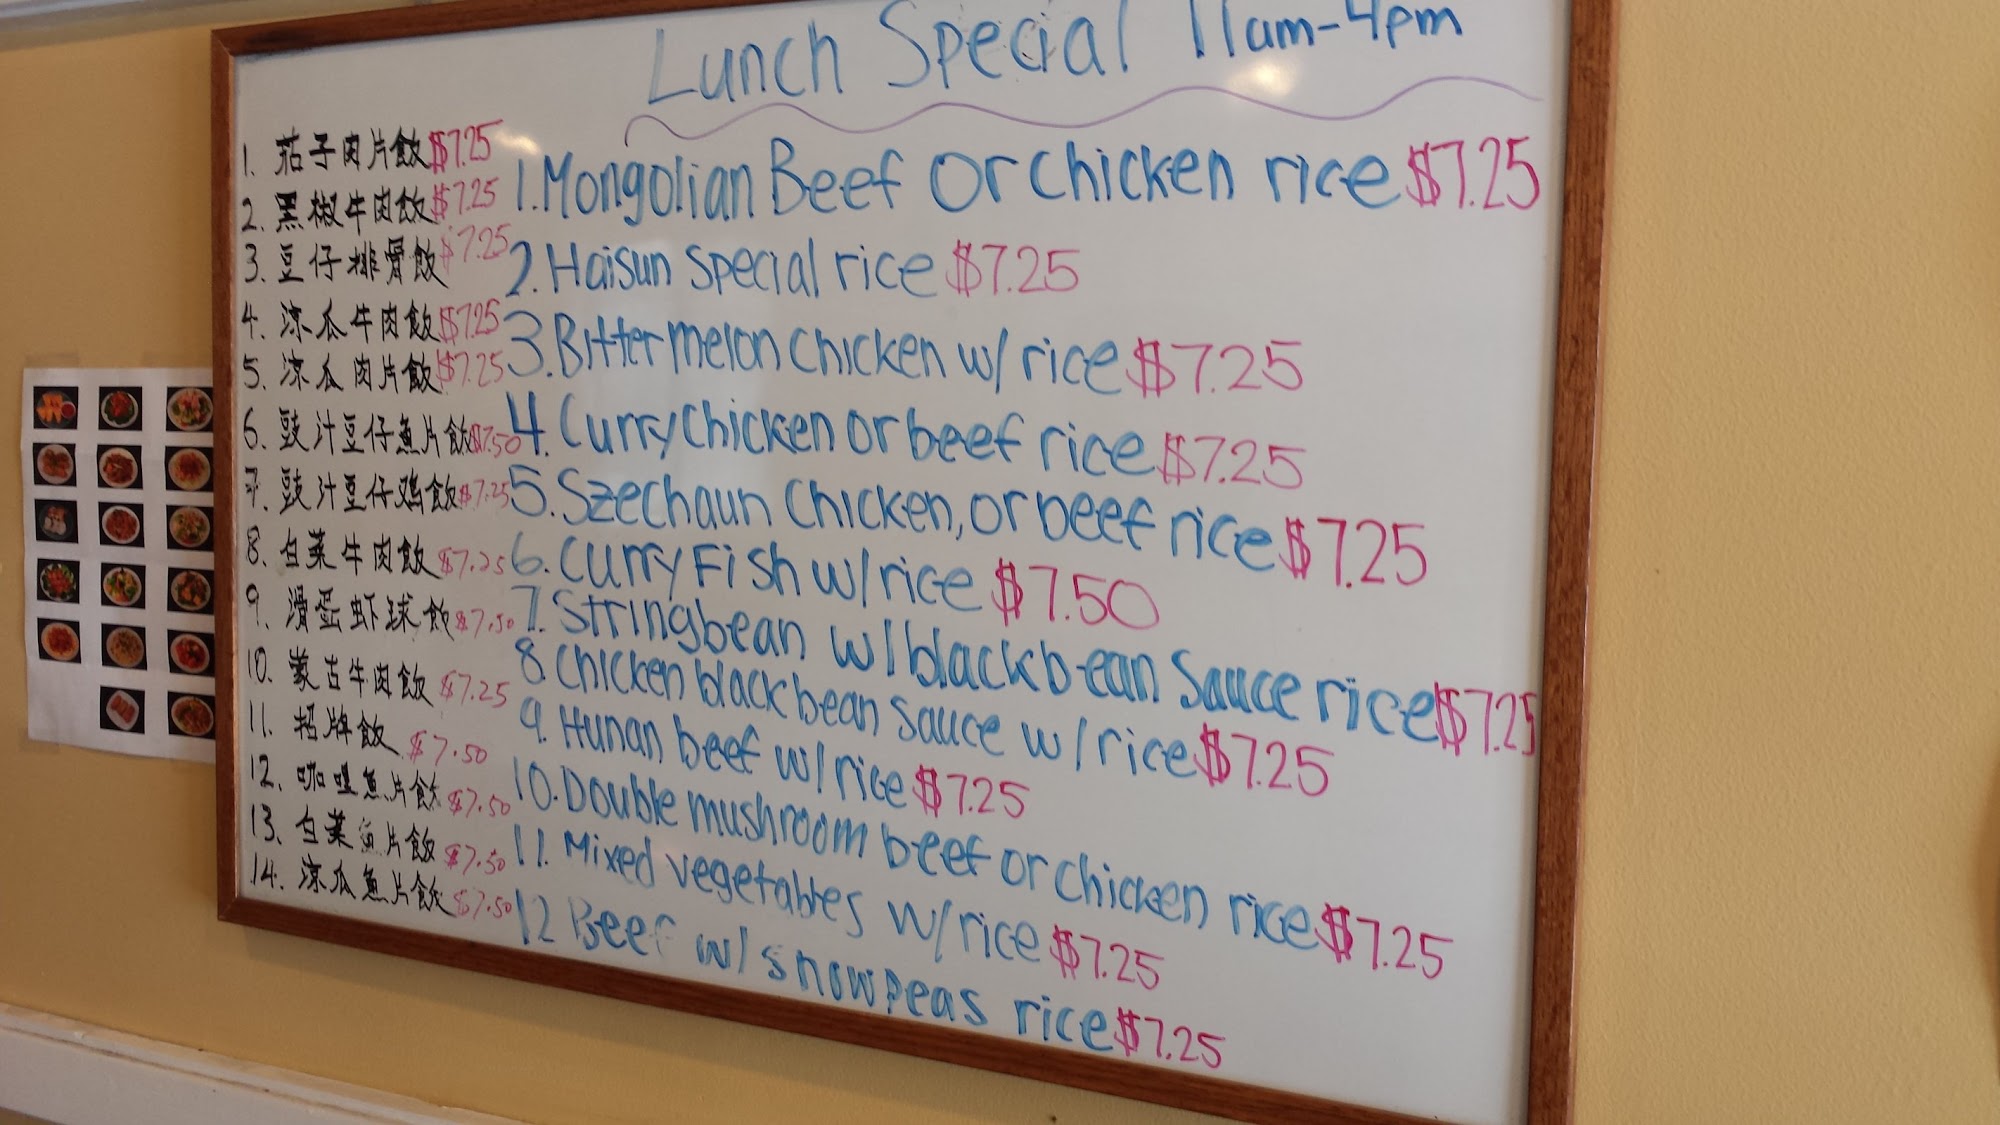 Lunch Special 11am-4pm
1. 茄子肉片飯 $7.25
2. 黑椒牛肉飯 $7.25
3. 豆仔排骨飯 $7.25
4. 涼瓜牛肉飯 $7.25
5. 涼瓜肉片飯 $7.25
6. 豉汁豆仔魚片飯 $7.50
7. 豉汁豆仔鸡飯 $7.25
8. 白菜牛肉飯 $7.25
9. 滑蛋虾球飯 $7.50
10. 蒙古牛肉飯 $7.25
11. 招牌飯 $7.50
12. 咖喱魚片飯 $7.50
13. 白菜魚片飯 $7.50
14. 涼瓜魚片飯 $7.50
1. Mongolian Beef Or Chicken rice $7.25
2. Haisun Special rice $7.25
3. Bitter melon Chicken w/ rice $7.25
4. Curry Chicken or beef rice $7.25
5. Szechaun Chicken, or beef rice $7.25
6. Curry Fish w/ rice $7.50
7. Stringbean w/ blackbean Sauce rice $7.25
8. Chicken black bean Sauce w/ rice $7.25
9. Hunan beef w/ rice $7.25
10. Double mushroom beef or Chicken rice $7.25
11. Mixed vegetables w/ rice $7.25
12 Beef w/ snowpeas rice $7.25